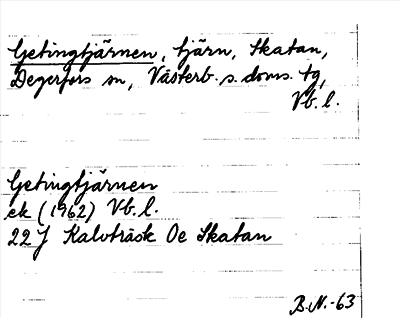 Getingtjärnen, tjärn, Skatan,
Degerfors sn, Västerb. s. doms. tg,
Vb. l.
Getingtjärnen
ek (1962) Vb. l.
22 J Kalvträsk Oe Skatan
B.N.-63